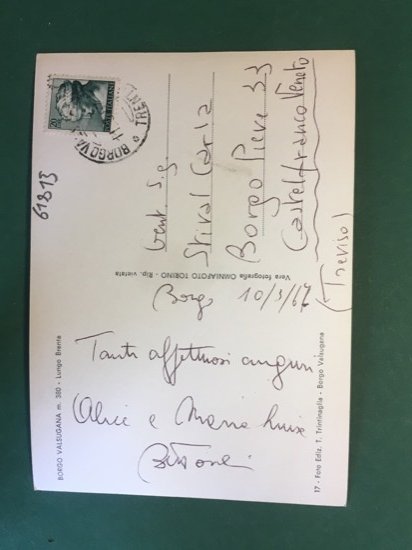 BORGO VALSUGANA m. 380 - Lungo Brenta
Borgo 10/3/67
Tanti affettuosi auguri
Alice e Maria Luisa
17 - Foto Ediz. T. Trintinaglia - Borgo Valsugana
Vera fotografia OMNIAFOTO TORINO - Rip. vietata
61813
POSTE ITALIANE
20
BORGO VA
TRENT
Gent. Sig.
Stival Carla
Borgo Pieve 33
Castelfranco Veneto
(Treviso)